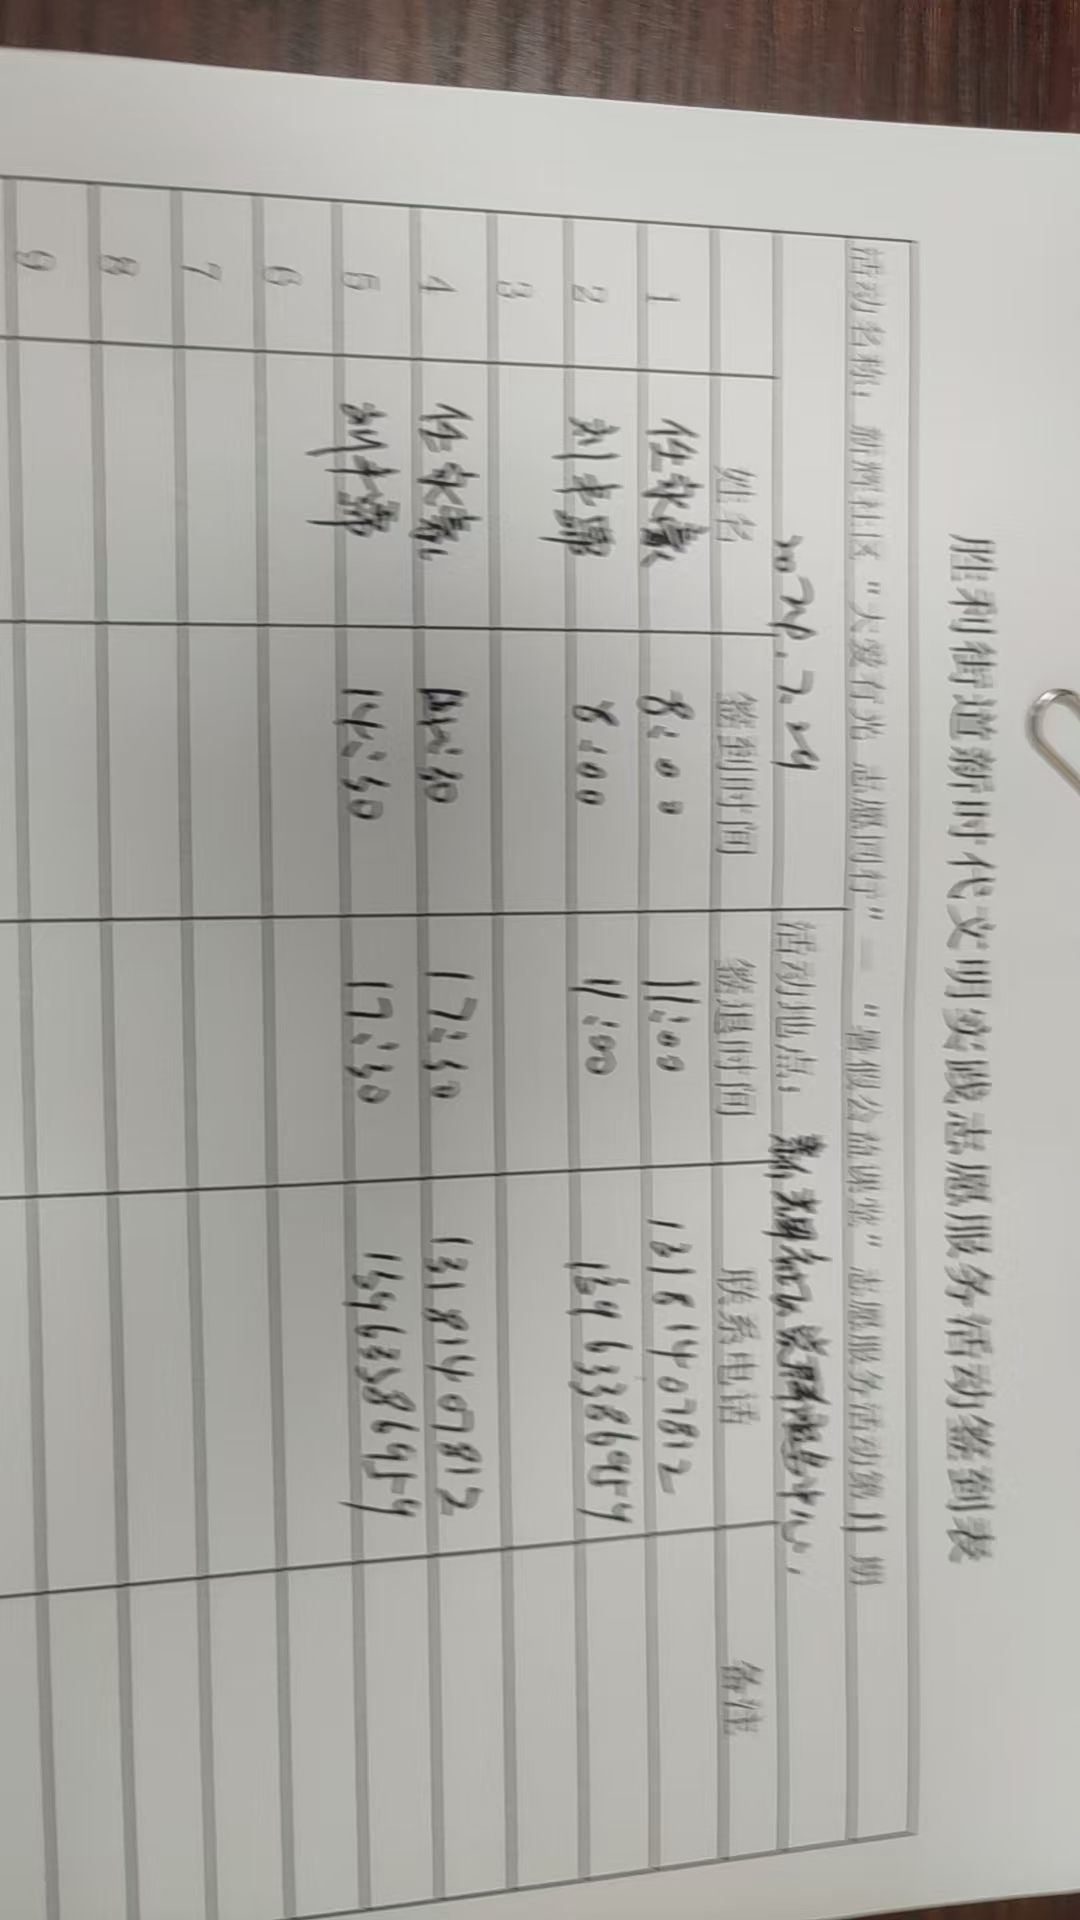 胜利街道新时代文明实践志愿服务活动签到表
活动名称：新辉社区“大爱有光 志愿同行”—“暑假公益课堂”志愿服务活动第11期
2024.7.24 活动地点： 中心
姓名 签到时间 签退时间 联系电话 备注
1 任永嘉 8:00 11:00 13181407812
2 刘 8:00 11:00 13963386954
3
4 任永嘉 14:30 17:30 13181407812
5 刘 14:30 17:30 13963386954
6
7
8
9